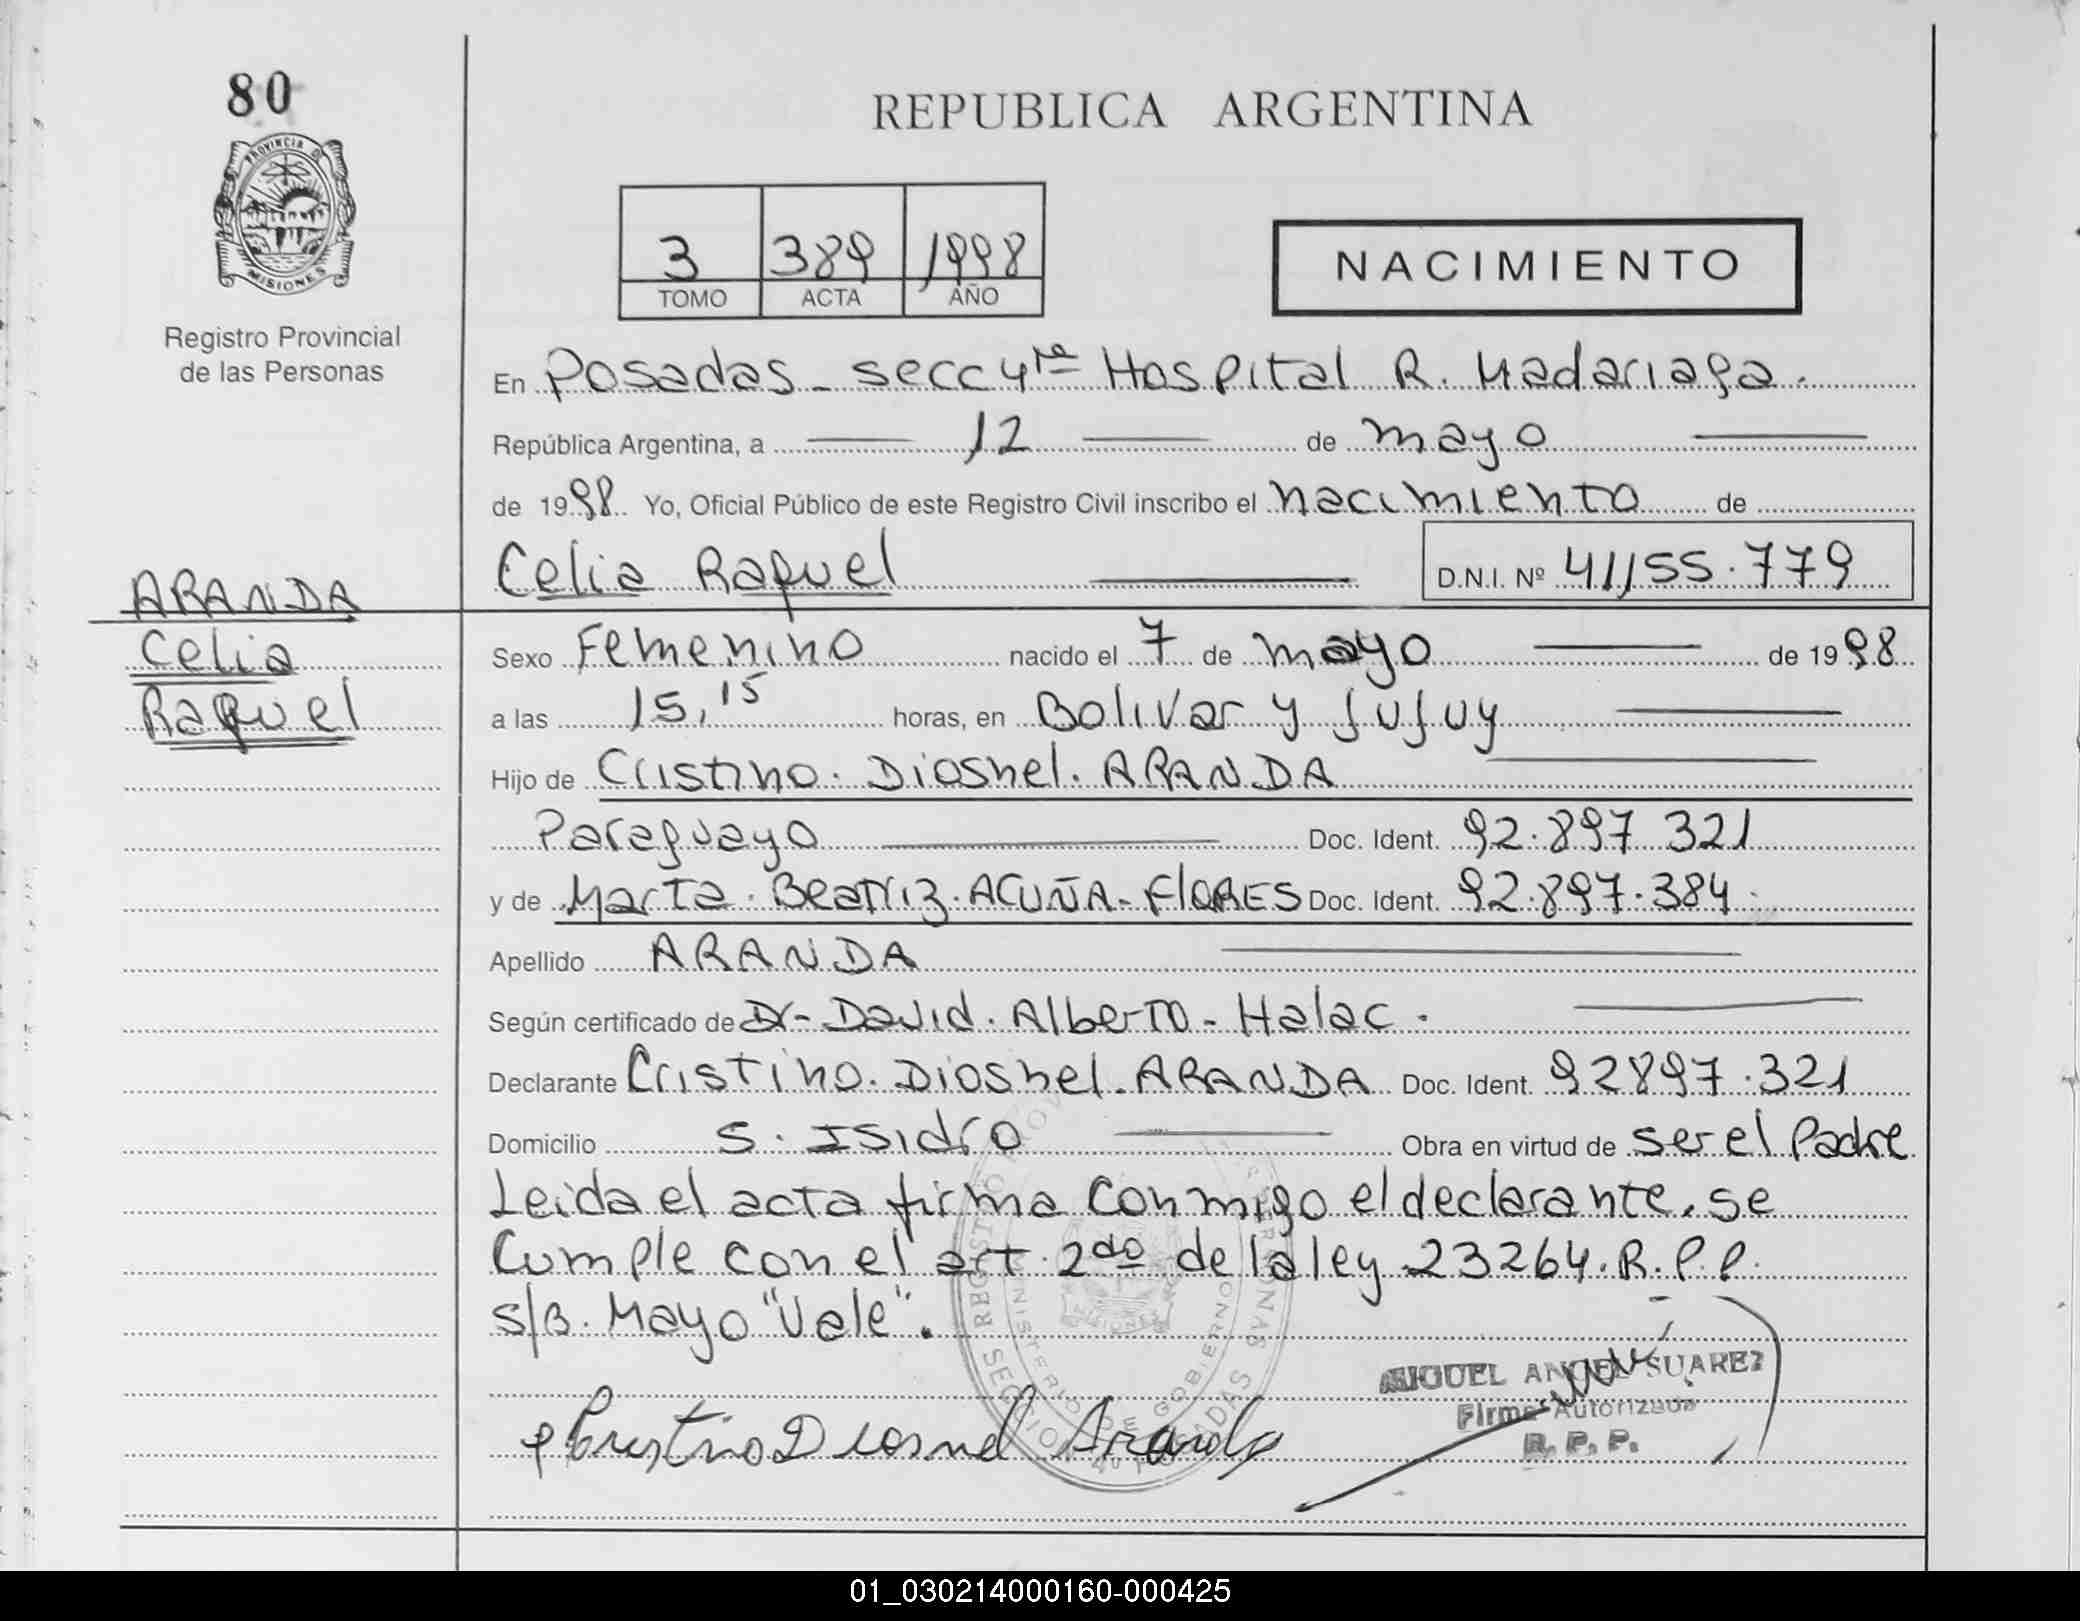 80
PROVINCIA D
MISIONES
Registro Provincial
de las Personas
REPUBLICA ARGENTINA
3 389 1998
TOMO ACTA AÑO
NACIMIENTO
En Posadas - secc 4ta Hospital R. Madariaga.
República Argentina, a 12 de mayo
de 1998 Yo, Oficial Público de este Registro Civil inscribo el nacimiento de
Celia Raquel D.N.I. Nº 41,155.779
ARANDA
Celia
Raquel
Sexo Femenino nacido el 7 de mayo de 1998
a las 15,15 horas, en Bolivar y Jujuy
Hijo de Cristino. Diosnel. ARANDA
Paraguayo Doc. Ident. 92.897.321
y de Marta. Beatriz. ACUÑA - FlORES Doc. Ident. 92.897.384.
Apellido ARANDA
Según certificado de Dr - David. Alberto - Halac.
Declarante Cristino. Diosnel. ARANDA Doc. Ident. 92897.321
Domicilio S. Isidro Obra en virtud de ser el Padre
Leida el acta firma conmigo el declarante, se
Cumple con el art. 2do de la ley 23264. R.P.P.
s/B. Mayo "Vale".
REGISTRO PROV
PERSONAS
MINISTERIO DE GOBIERNO
SECCION 4ª POSADAS
MIGUEL ANGEL SUAREZ
Firma Autorizada
R. P. P.
Cristino Diosnel Aranda
01_030214000160-000425